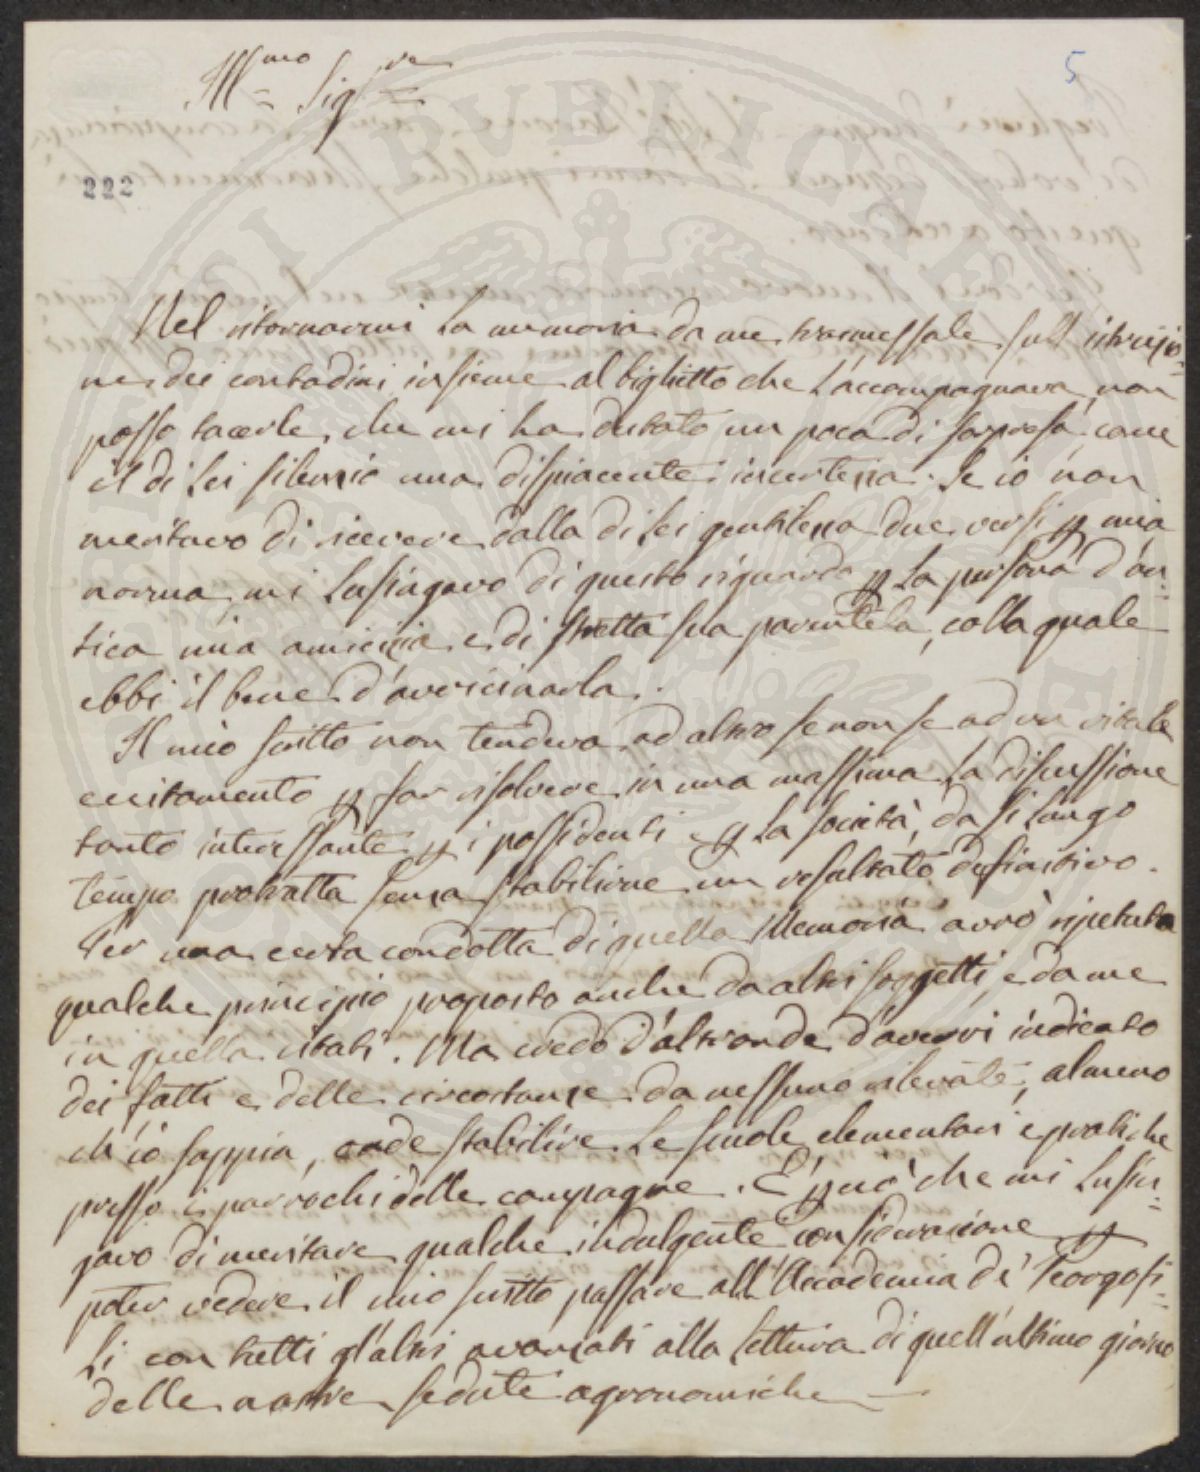 5
Ill.mo Sig.re
222
Nel ritornarmi la memoria da me trasmessale sull'istruzio-
ne dei contadini insieme al biglietto che l'accompagnava, non
posso tacerle, che mi ha destato un poca di sorpresa, come
il di Lei silenzio una dispiacente incertezza. Se io non
meritavo di ricevere dalla di Lei gentilezza due versi p mia
norma, mi lusingavo di questo riguardo p la persona d'an-
tica mia amicizia e di stretta sua parentela, colla quale
ebbi il bene d'avvicinarla.
Il mio scritto non tendeva ad altro se non se ad un vitale
eccitamento p far risolvere in una massima la discussione
tanto interessante p i possidenti e p la società, da sì lungo
tempo protratta senza stabilirne un resultato definitivo.
Per una certa condotta di quella Memoria avrò ripetuto
qualche principio proposto anche da altri soggetti, e da me
in quella citati. Ma credo d'altronde d'avervi indicato
dei fatti e delle circostanze da nessuno rilevate, almeno
ch'io sappia, onde stabilire le scuole elementari e pratiche
presso i parrochi delle campagne. E' p ciò che mi lusin-
gavo di meritare qualche indulgente considerazione p
poter vedere il mio scritto passare all'Accademia de' Georgofi-
li con tutti gl'altri avanzati alla lettura di quell'ultimo giorno
delle nostre sedute agronomiche